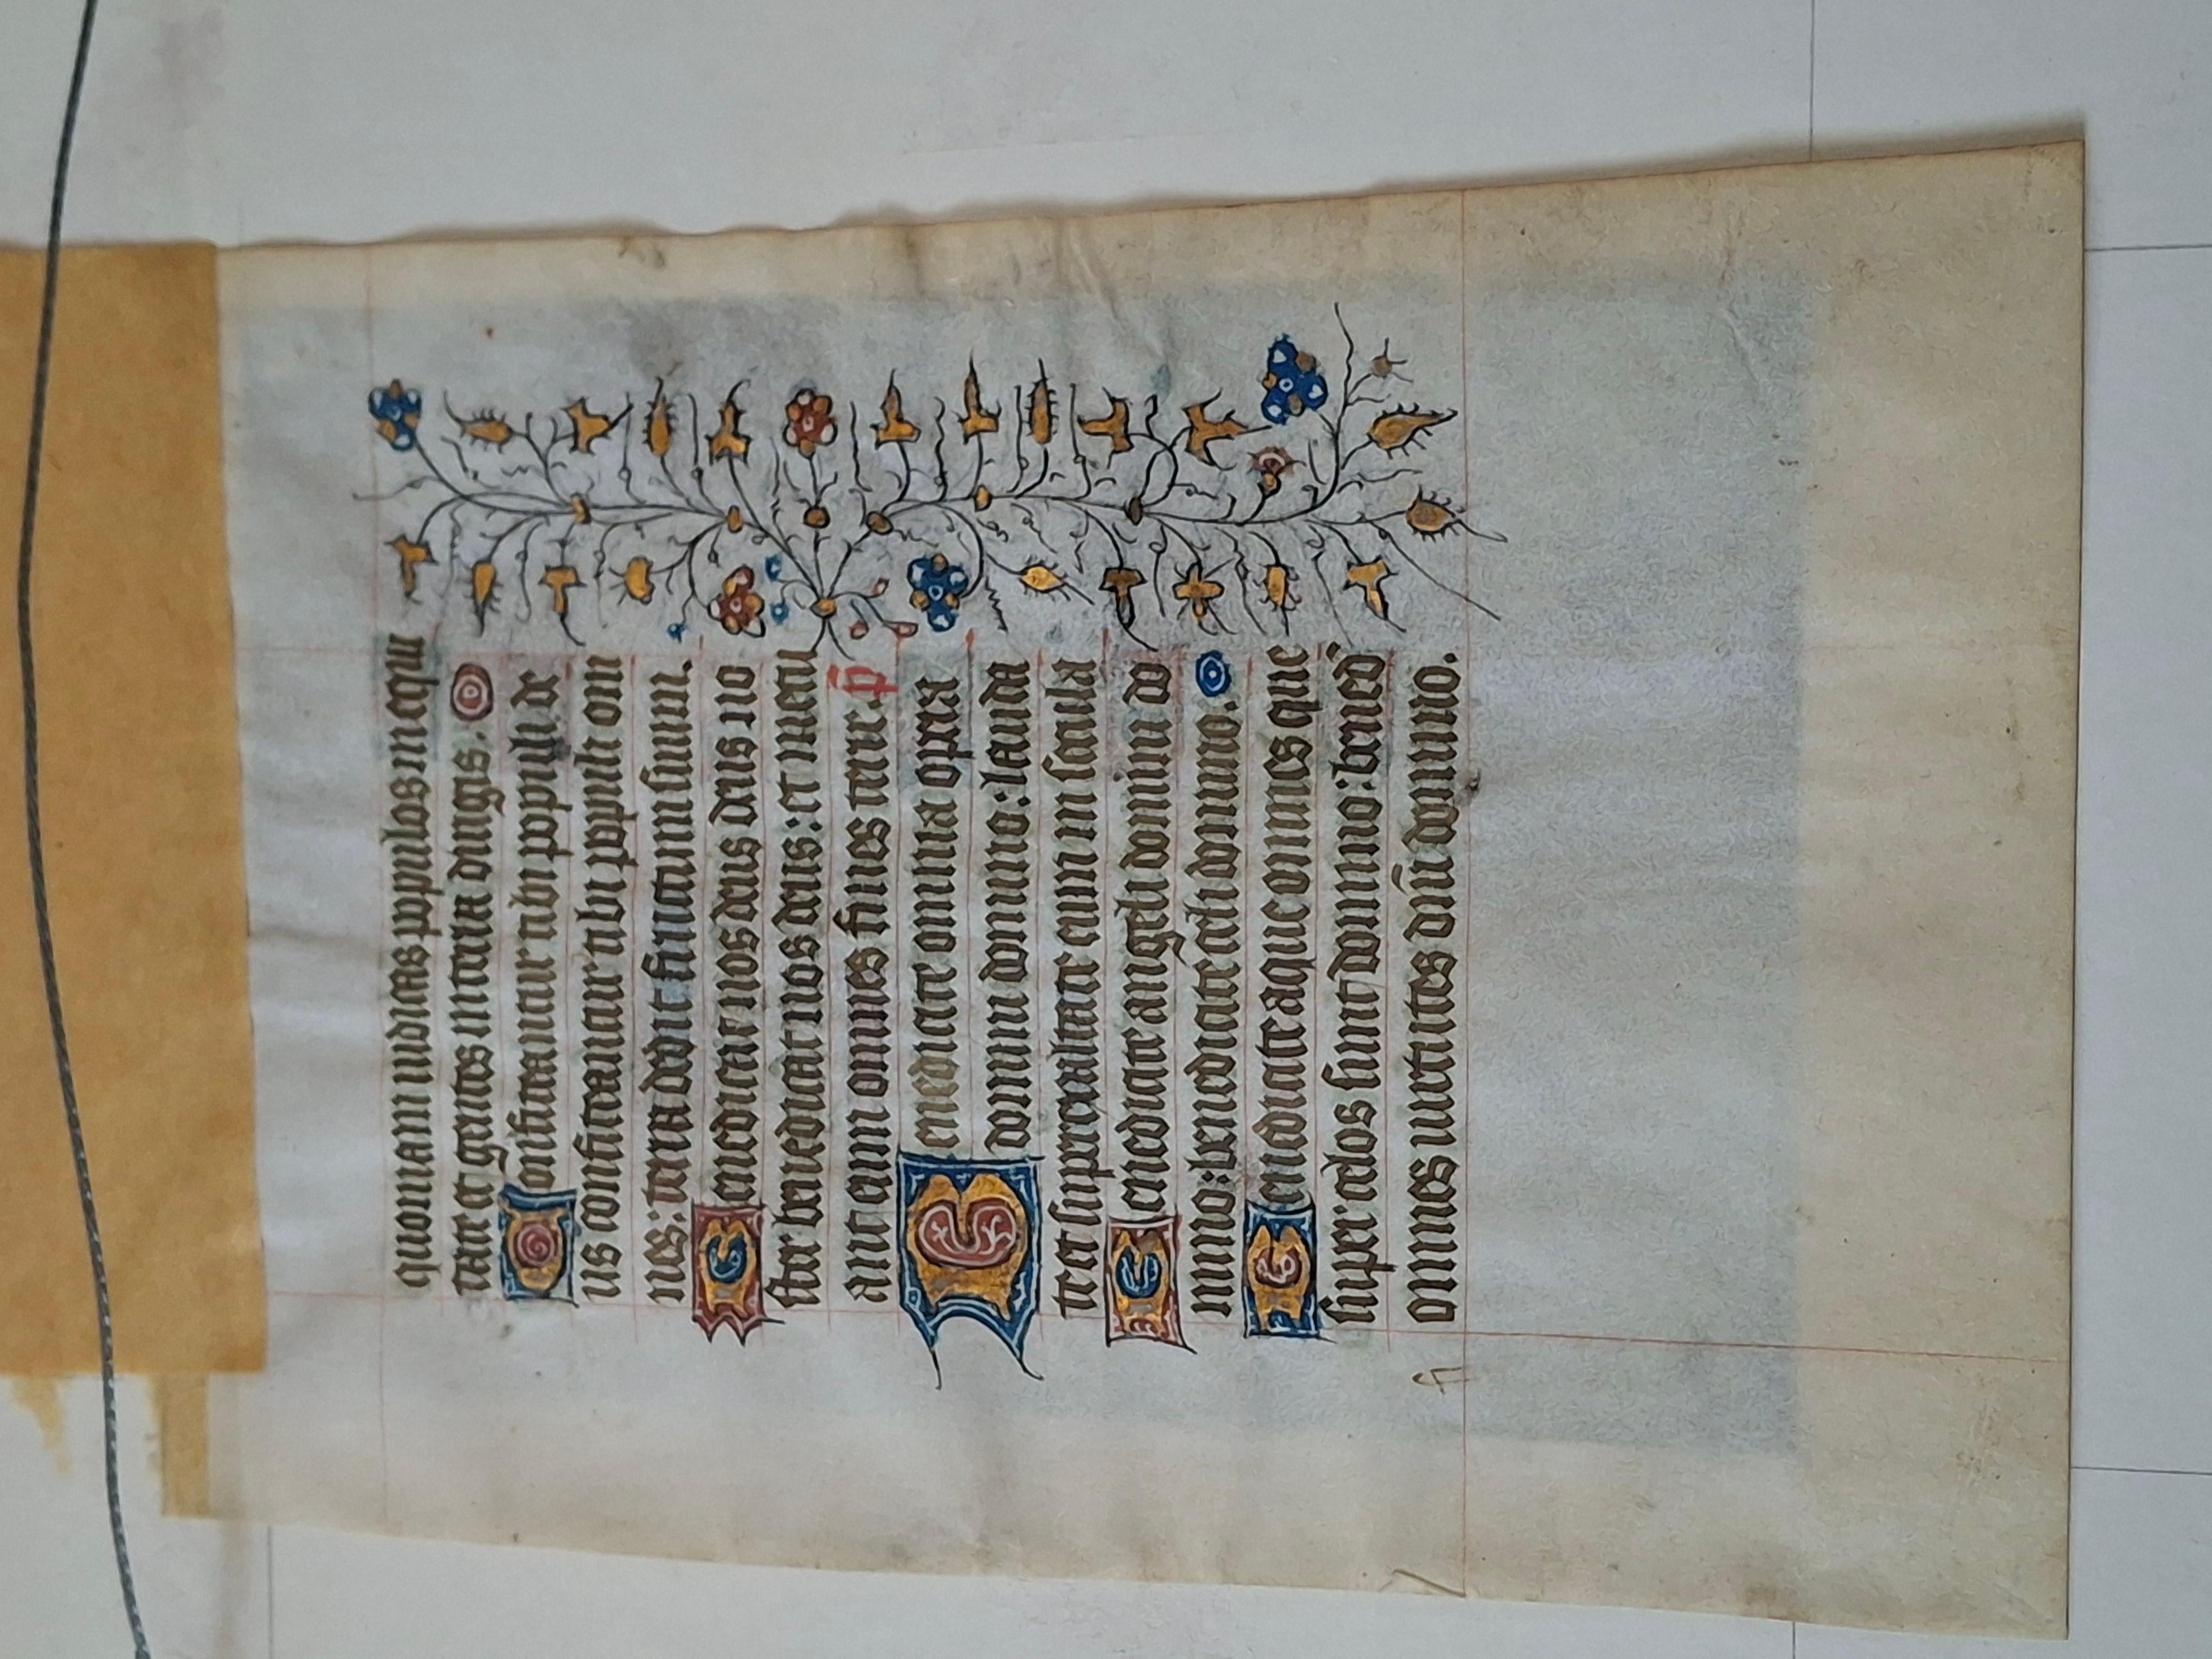 quoniam iudicas populos in equi
tate et gentes in terra dirigis.
Confiteantur tibi populi de
us confiteantur tibi populi om
nes: terra dedit fructum suum.
Benedicat nos deus deus no
ster benedicat nos deus: et metu
ant eum omnes fines terre. p̄
Benedicite omnia opera
domini domino: lauda
te et superexaltate eum in secula
Benedicite angeli domini do
mino: benedicite celi domino.
Benedicite aque omnes que
super celos sunt domino: bened̄
omnes uirtutes dn̄i domino.